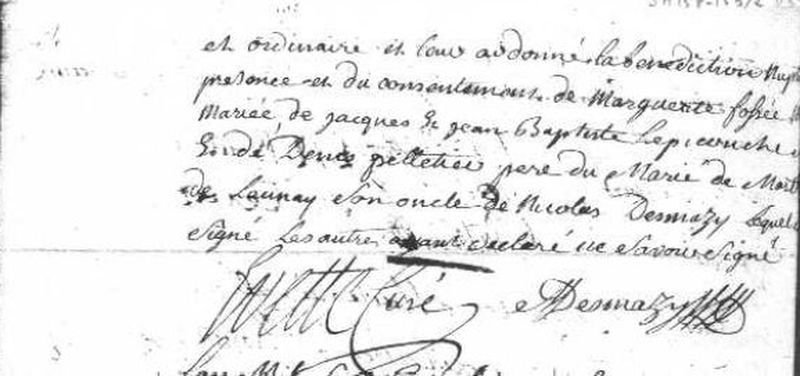 et ordinaire et leur ai donné la benediction Nup
presence et du consentement de Marguerite fossée
Mariée, de Jacques & jean Baptiste Lepicouche
& de Denis pelletier pere du Marié de
de Launay son oncle de Nicolas Desmazy lequel
signé les autres ayant declaré ne savoir signé
Curé Desmazy